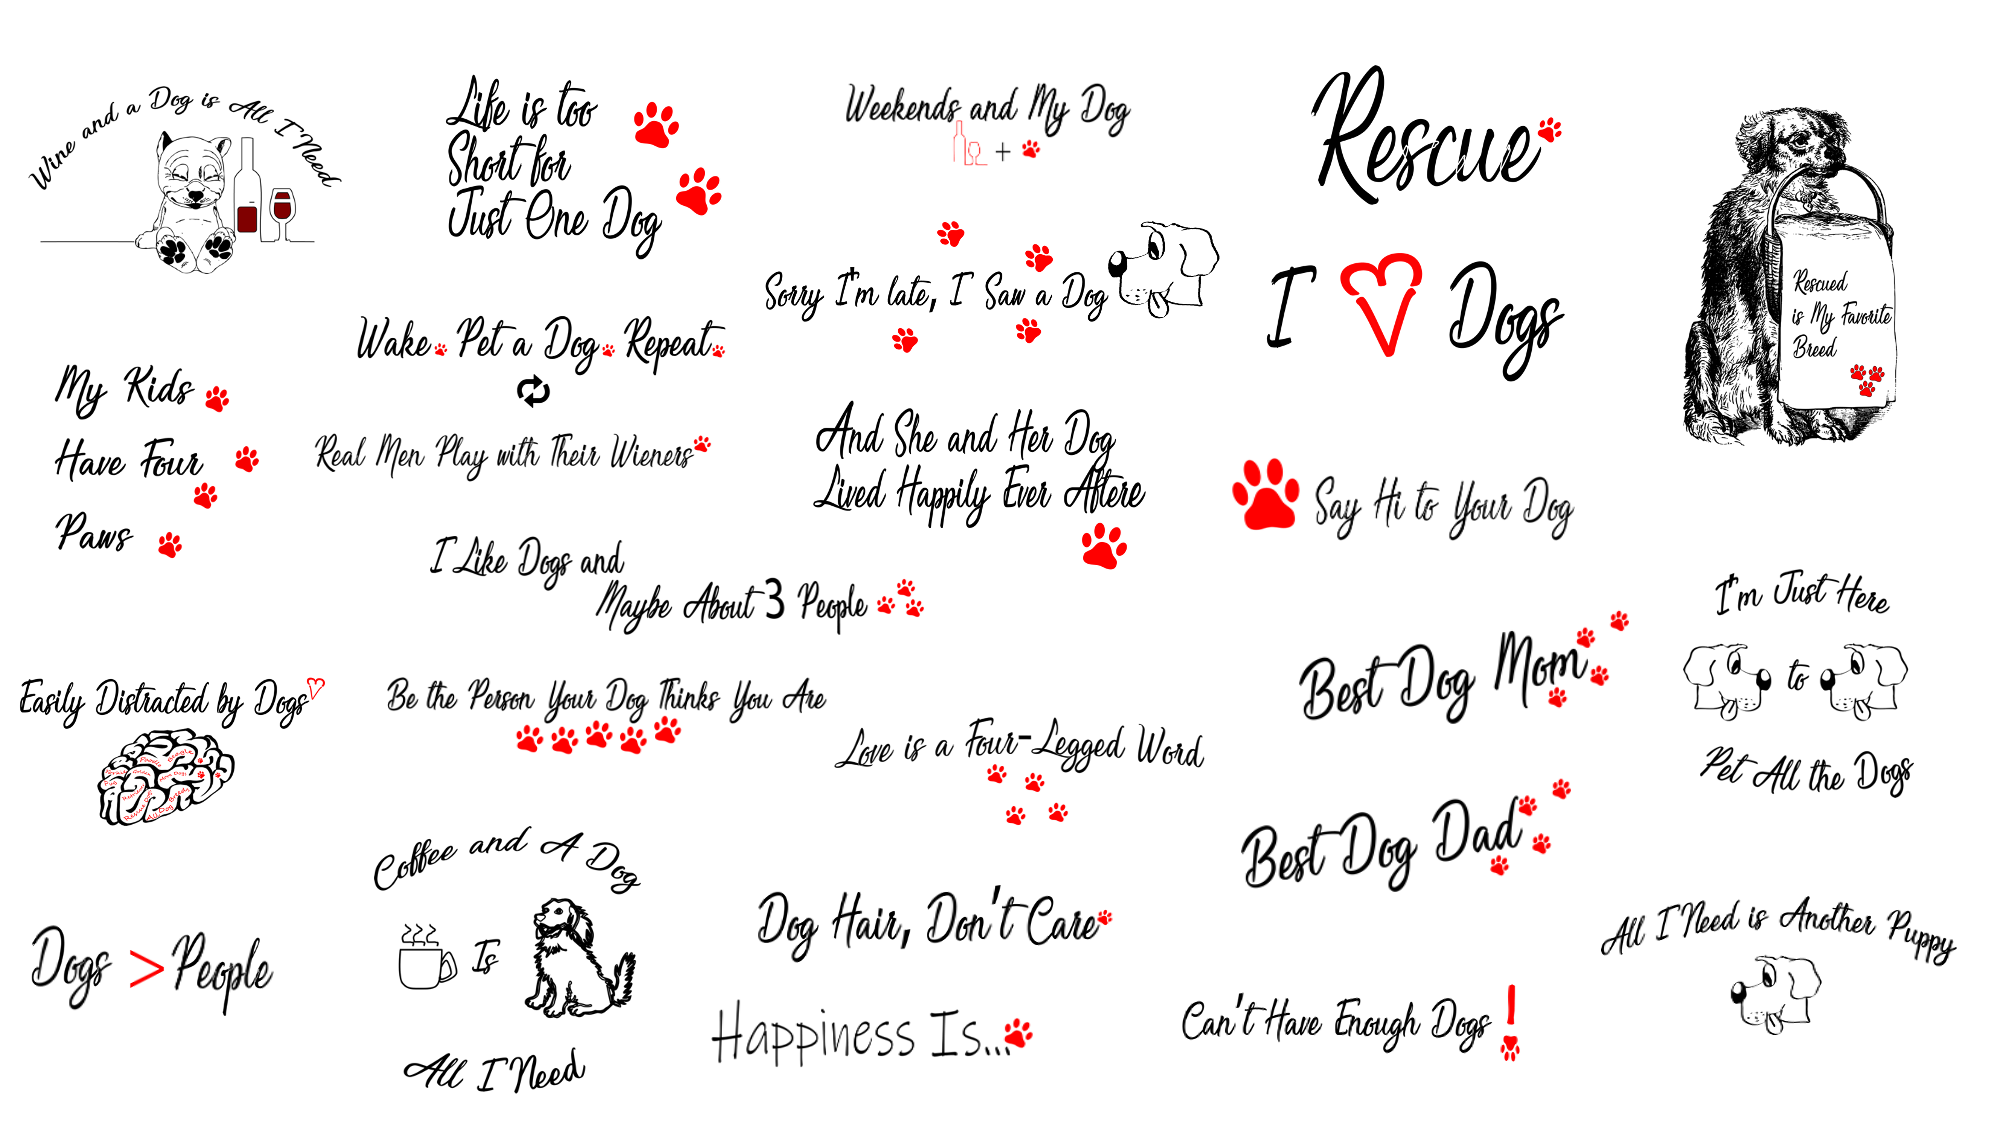 Wine and a Dog is All I Need
Life is too
Short for
Just One Dog
Weekends and My Dog
+
Rescue
Rescued
is My Favorite
Breed
Sorry I'm late, I Saw a Dog
I Dogs
Wake Pet a Dog Repeat
My Kids
Have Four
Paws
Real Men Play with Their Wieners
And She and Her Dog
Lived Happily Ever Aftere
Say Hi to Your Dog
I Like Dogs and
Maybe About 3 People
I'm Just Here
to
Pet All the Dogs
Best Dog Mom
Easily Distracted by Dogs
Poodle
Beagle
Be the Person Your Dog Thinks You Are
Love is a Four-Legged Word
Best Dog Dad
Coffee and A Dog
Is
All I Need
Dogs > People
Dog Hair, Don't Care
All I Need is Another Puppy
Happiness Is...
Can't Have Enough Dogs !